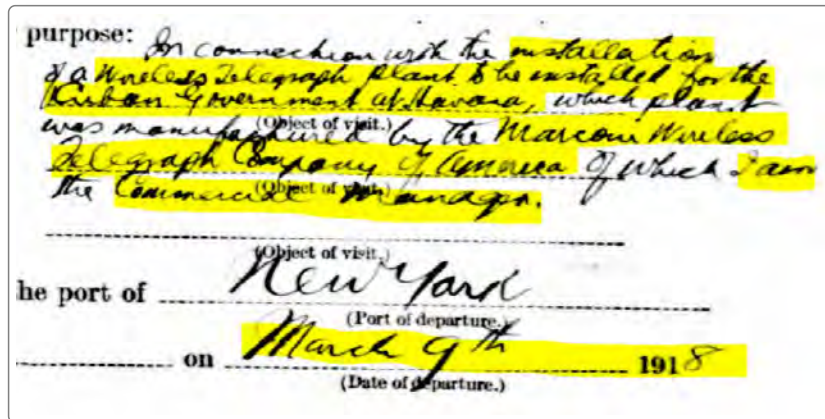 purpose: In connection with the installation
of a Wireless Telegraph plant to be installed for the
Cuban Government at Havana, which plant
(Object of visit.)
was manufactured by the Marconi Wireless
Telegraph Company of America of which I am
(Object of visit.)
the Commercial Manager.
(Object of visit.)
he port of New York
(Port of departure.)
on March 9th 1918
(Date of departure.)